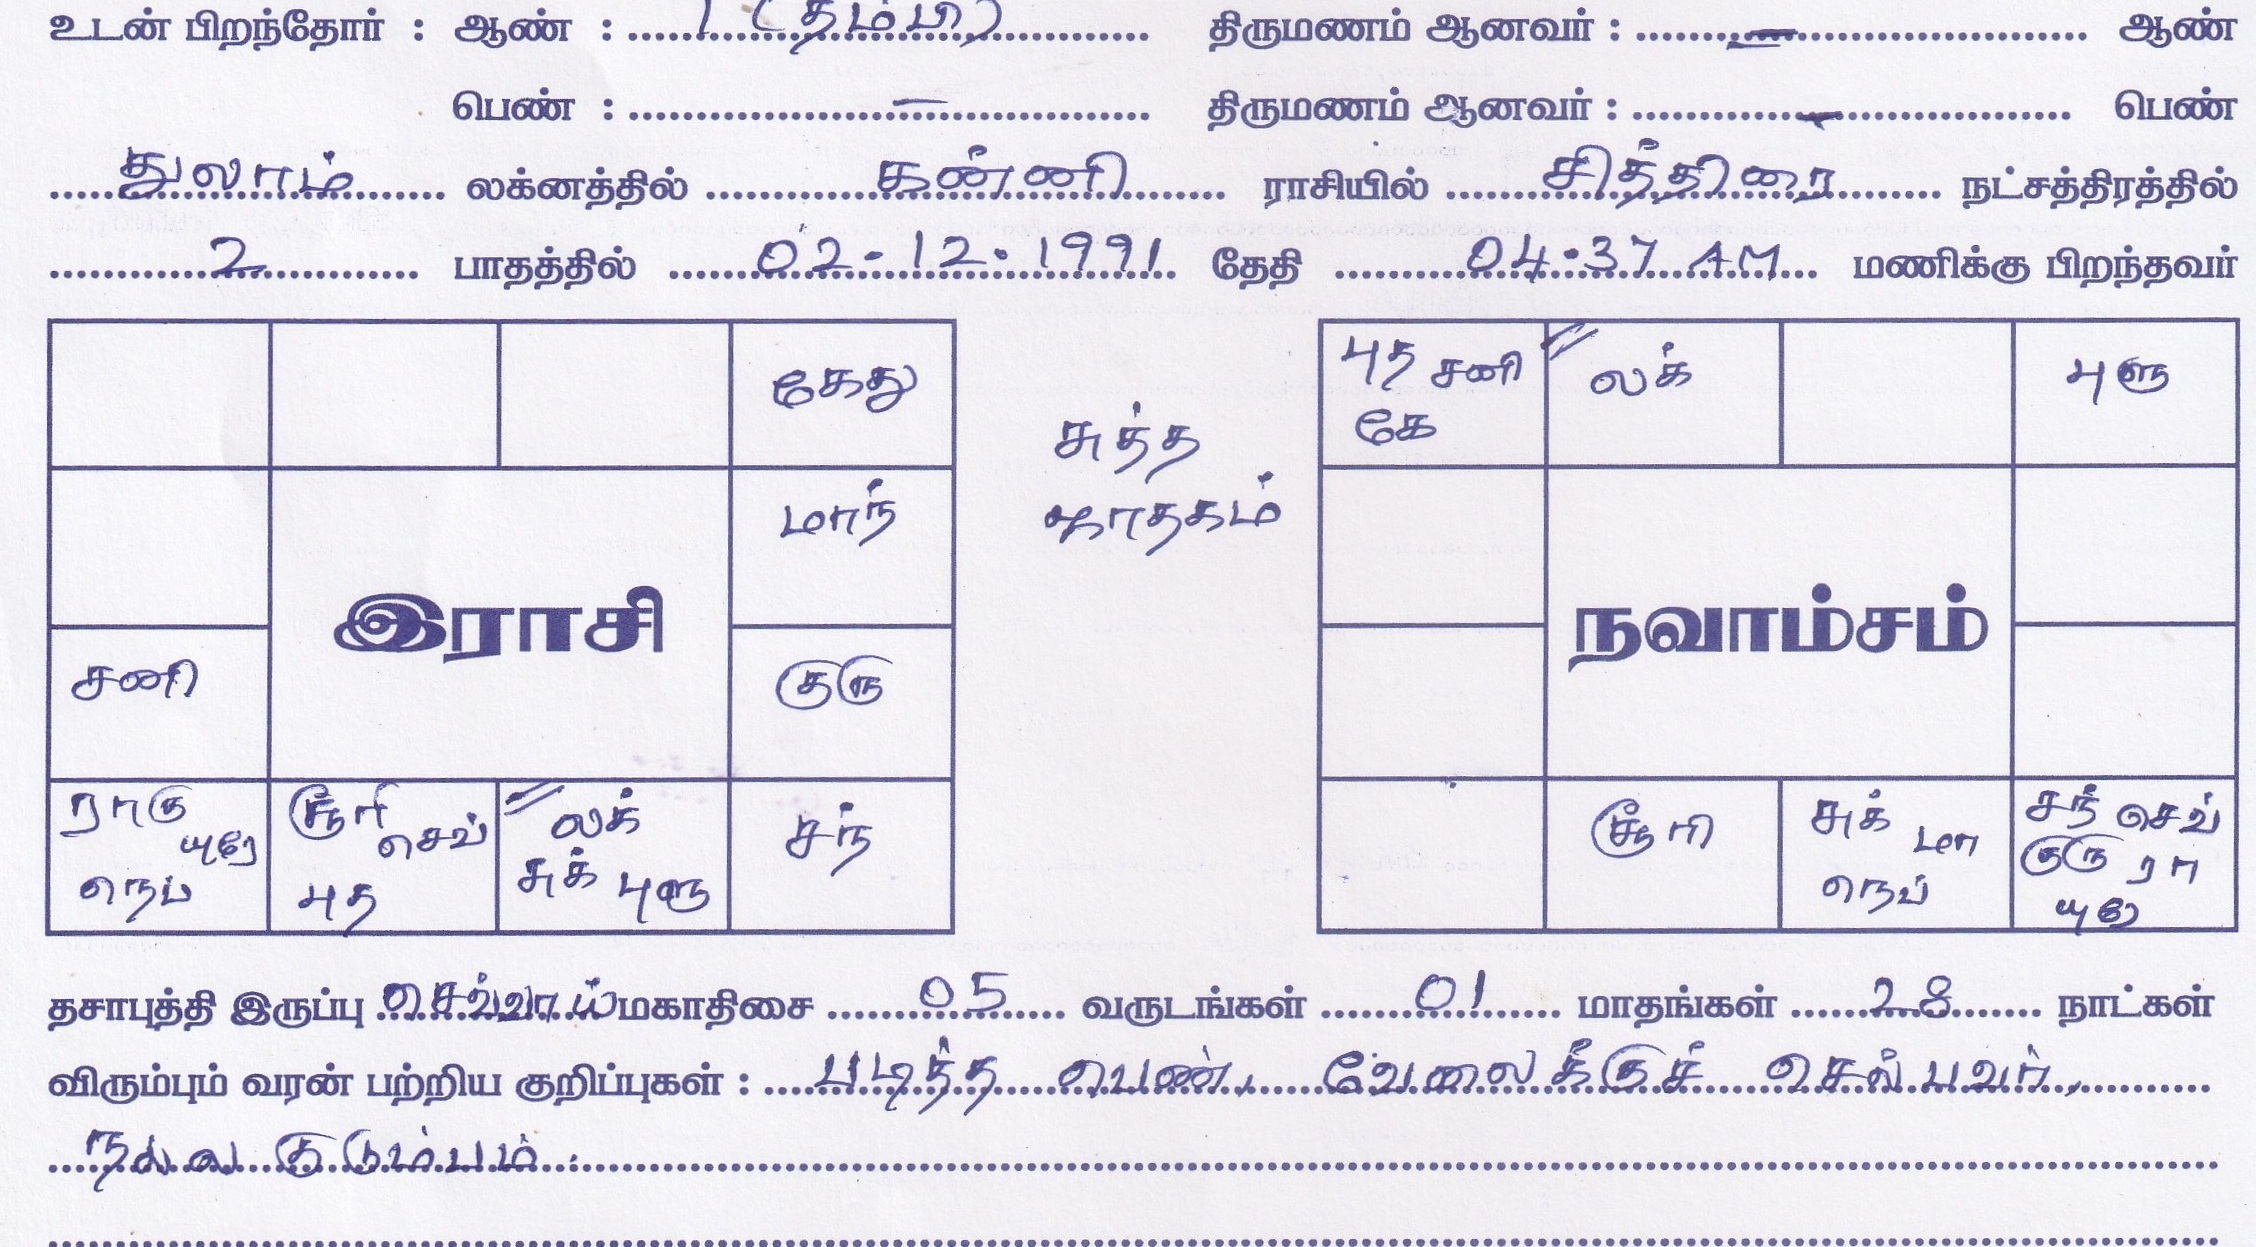 உடன் பிறந்தோர் : ஆண் : 1 (தம்பி) திருமணம் ஆனவர் : – ஆண்
பெண் : – திருமணம் ஆனவர் : – பெண்
துலாம் லக்னத்தில் கன்னி ராசியில் சித்திரை நட்சத்திரத்தில்
2 பாதத்தில் 02-12-1991 தேதி 04:37 AM மணிக்கு பிறந்தவர்
கேது
மாந்
இராசி
சனி
குரு
ராகு யுரே நெப்
சூரி செவ் புத
லக் சுக் புளூ
சந்
சுத்த
ஜாதகம்
புத சனி
கே
லக்
புளூ
நவாம்சம்
சூரி
சுக் மா நெப்
சந் செவ் குரு ரா யுரே
தசாபுத்தி இருப்பு செவ்வாய் மகாதிசை 05 வருடங்கள் 01 மாதங்கள் 28 நாட்கள்
விரும்பும் வரன் பற்றிய குறிப்புகள் : படித்த பெண், வேலைக்குச் செல்பவர்,
நல்ல குடும்பம்.